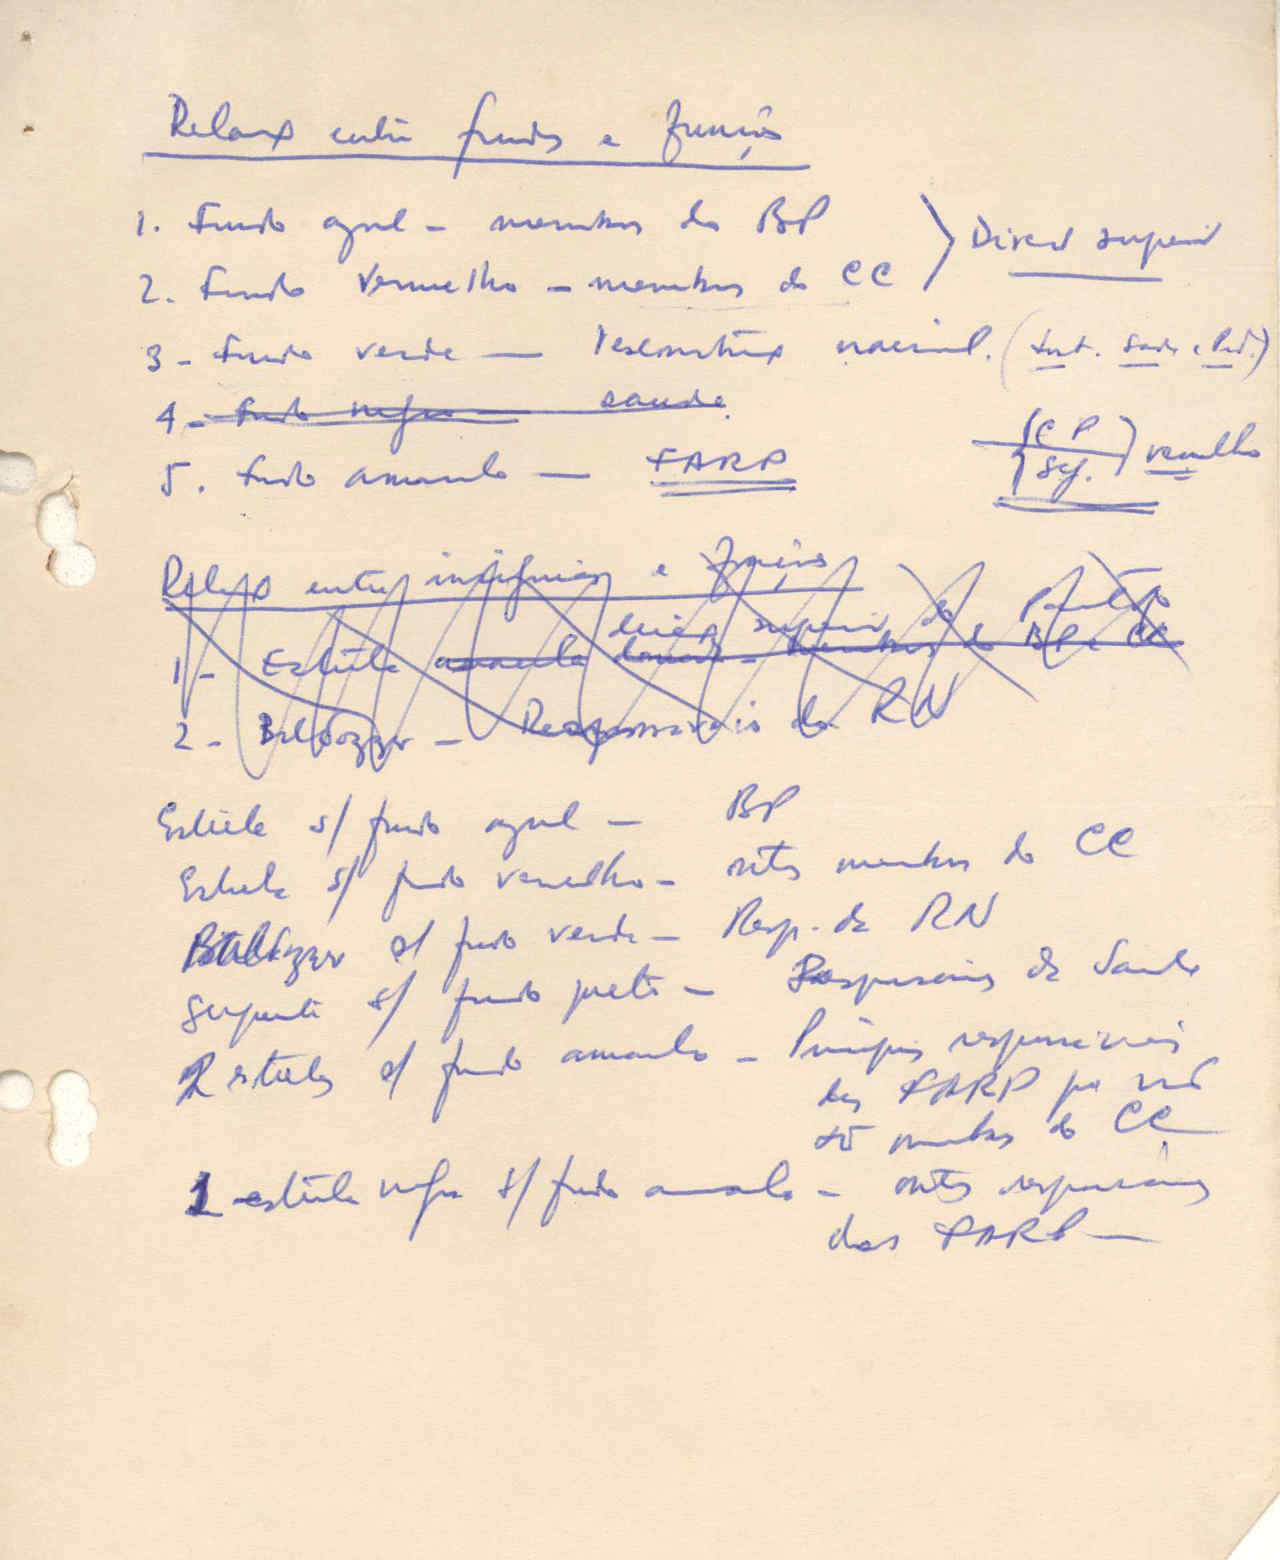 Relação entre fundos e funções
1. Fundo azul - membros do BP
Direcção superior
2. Fundo vermelho - membros do CC
3 - Fundo verde — Reconstrução nacional. (Inst. Saúde e Prod.)
4 - Fundo negro — saúde
CP
Seg. vermelho
5. Fundo amarelo — FARP
Relação entre insígnias e funções
direcção superior do Partido
1 - Estrela amarela dourada - membros do BP e CC
2 - Bulldozer - Responsáveis da RN
Estrela s/ fundo azul - BP
Estrela s/ fundo vermelho - outros membros do CC
Bulldozer s/ fundo verde - Resp. da RN
Serpente s/ fundo preto - Responsáveis da Saúde
2 estrelas s/ fundo amarelo - Principais responsáveis
das FARP que não
são membros do CC
1 estrela negra s/ fundo amarelo - outros responsáveis
das FARP —